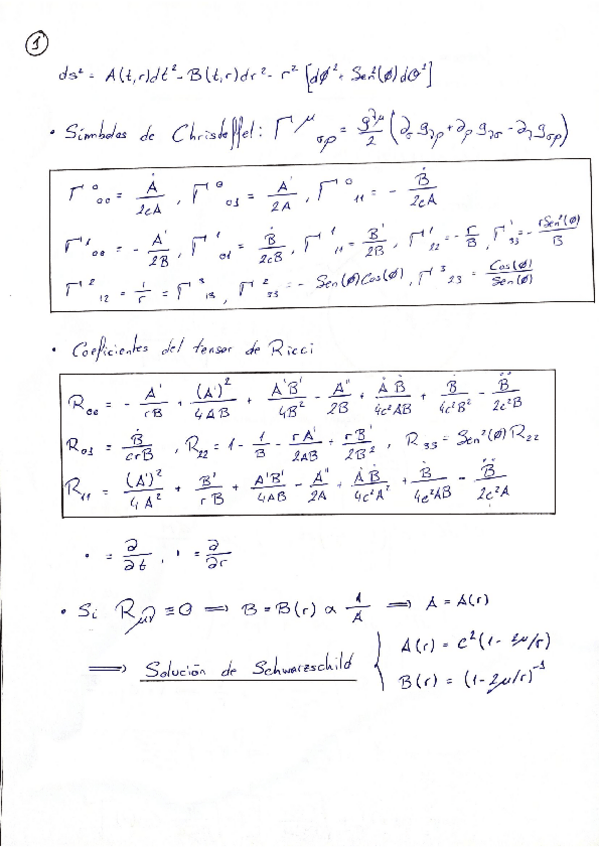 1
ds² = A(t,r)dt² - B(t,r)dr² - r² [dø² + Sen²(ø)dθ²]
• Símbolos de Christoffel: Γ^μ_σρ = g^λμ/2 (∂_σ g_λρ + ∂_ρ g_λσ - ∂_λ g_σρ)
Γ⁰₀₀ = Ȧ/2cA , Γ⁰₀₁ = A'/2A , Γ⁰₁₁ = - Ḃ/2cA
Γ¹₀₀ = - A'/2B , Γ¹₀₁ = Ḃ/2cB , Γ¹₁₁ = B'/2B , Γ¹₂₂ = - r/B , Γ¹₃₃ = - rSen²(ø)/B
Γ²₁₂ = 1/r = Γ³₁₃ , Γ²₃₃ = - Sen(ø)Cos(ø) , Γ³₂₃ = Cos(ø)/Sen(ø)
• Coeficientes del tensor de Ricci
R₀₀ = - A'/rB + (A')²/4AB + A'B'/4B² - A''/2B + ȦḂ/4c²AB + Ḃ/4c²B² - B̈/2c²B
R₀₁ = Ḃ/crB , R₂₂ = 1 - 1/B - rA'/2AB + rB'/2B² , R₃₃ = Sen²(ø) R₂₂
R₁₁ = (A')²/4A² + B'/rB + A'B'/4AB - A''/2A + ȦḂ/4c²A² + Ḃ/4c²AB - B̈/2c²A
• = ∂/∂t , ' = ∂/∂r
• Si R_μν ≡ 0 ⟹ B = B(r) ∝ 1/A ⟹ A = A(r)
⟹ Solución de Schwarzschild { A(r) = c²(1 - 2μ/r)
B(r) = (1 - 2μ/r)⁻¹